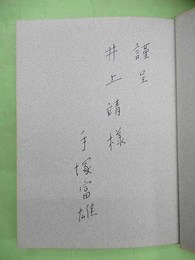 謹呈
井上靖様
手塚富雄